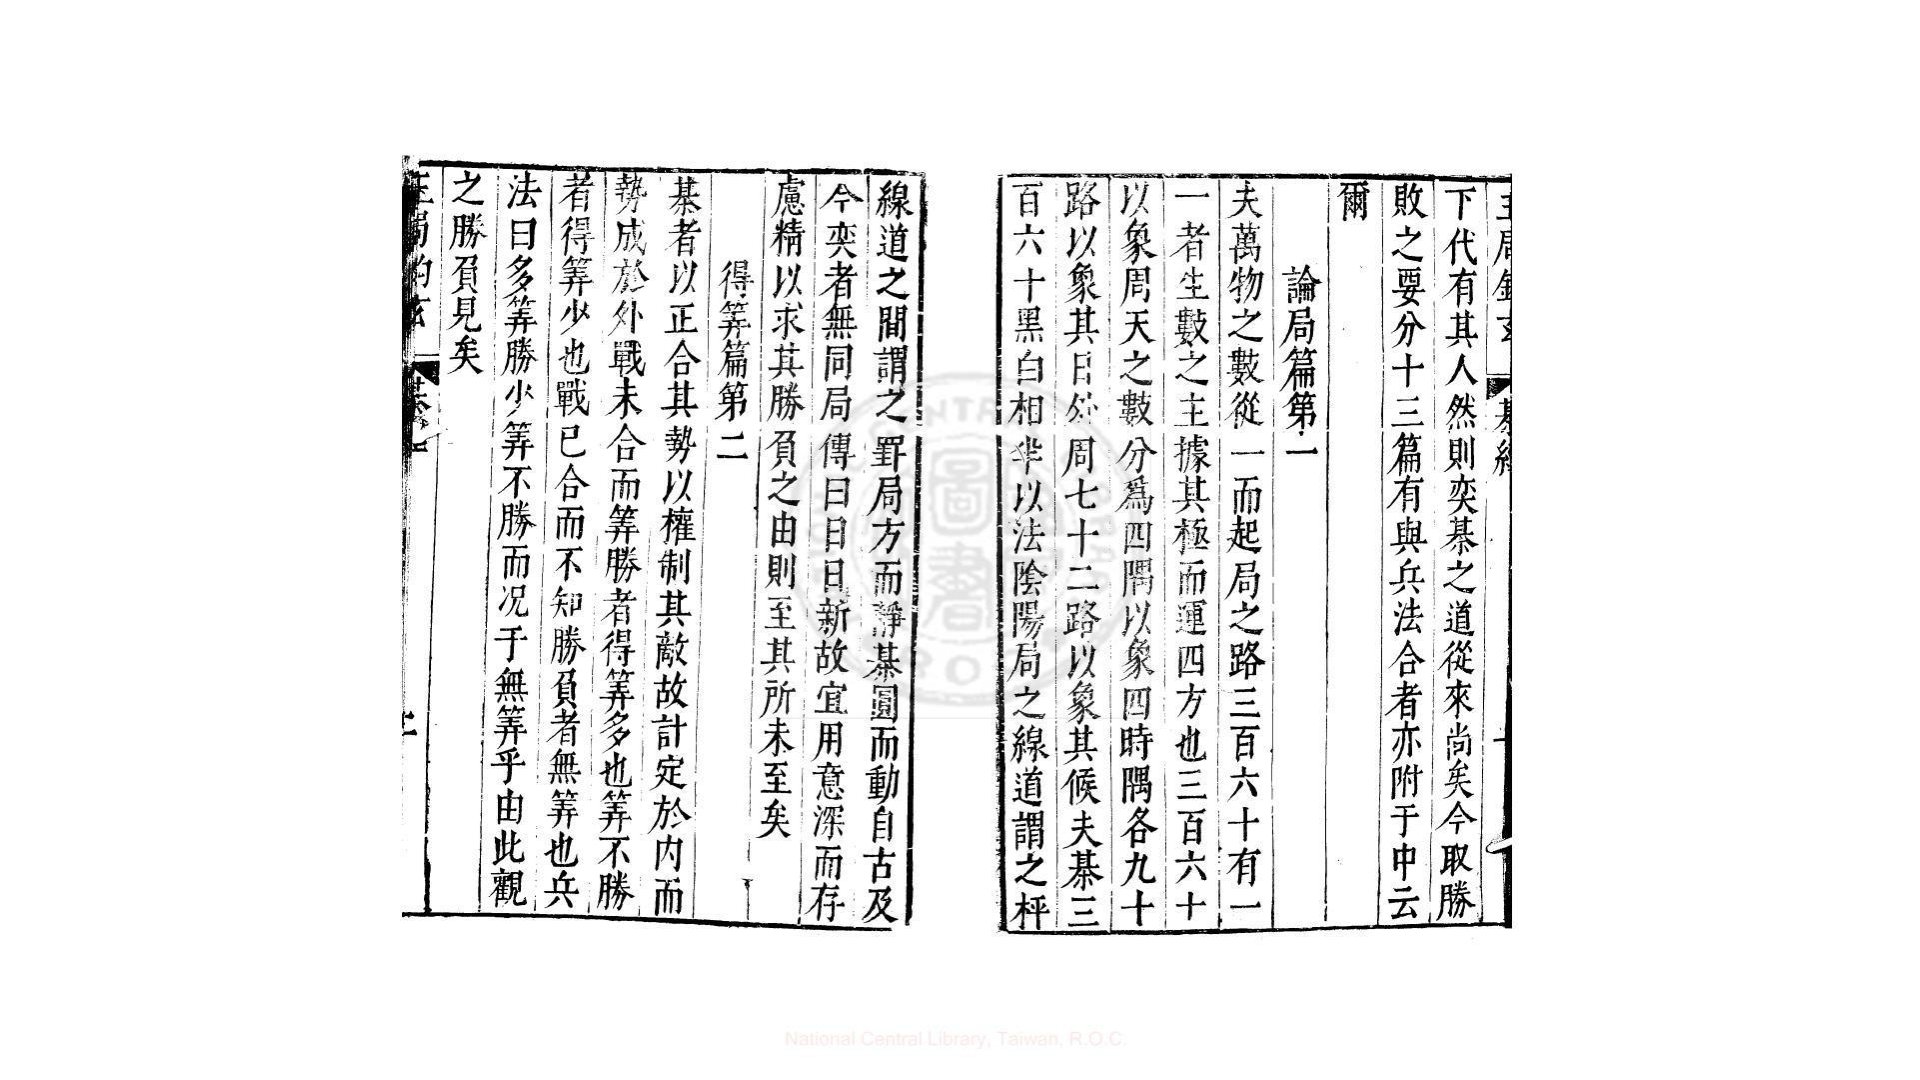 下代有其人然則奕棊之道從來尚矣今取勝
敗之要分十三篇有與兵法合者亦附于中云
爾
論局篇第一
夫萬物之數從一而起局之路三百六十有一
一者生數之主據其極而運四方也三百六十
以象周天之數分爲四隅以象四時隅各九十
路以象其日外周七十二路以象其候夫棊三
百六十黑白相半以法陰陽局之線道謂之枰
線道之間謂之罫局方而靜棊圓而動自古及
今奕者無同局傳曰日日新故宜用意深而存
慮精以求其勝負之由則至其所未至矣
得筭篇第二
棊者以正合其勢以權制其敵故計定於内而
勢成於外戰未合而筭勝者得筭多也筭不勝
者得筭少也戰已合而不知勝負者無筭也兵
法曰多筭勝少筭不勝而况于無筭乎由此觀
之勝負見矣
National Central Library, Taiwan, R.O.C.